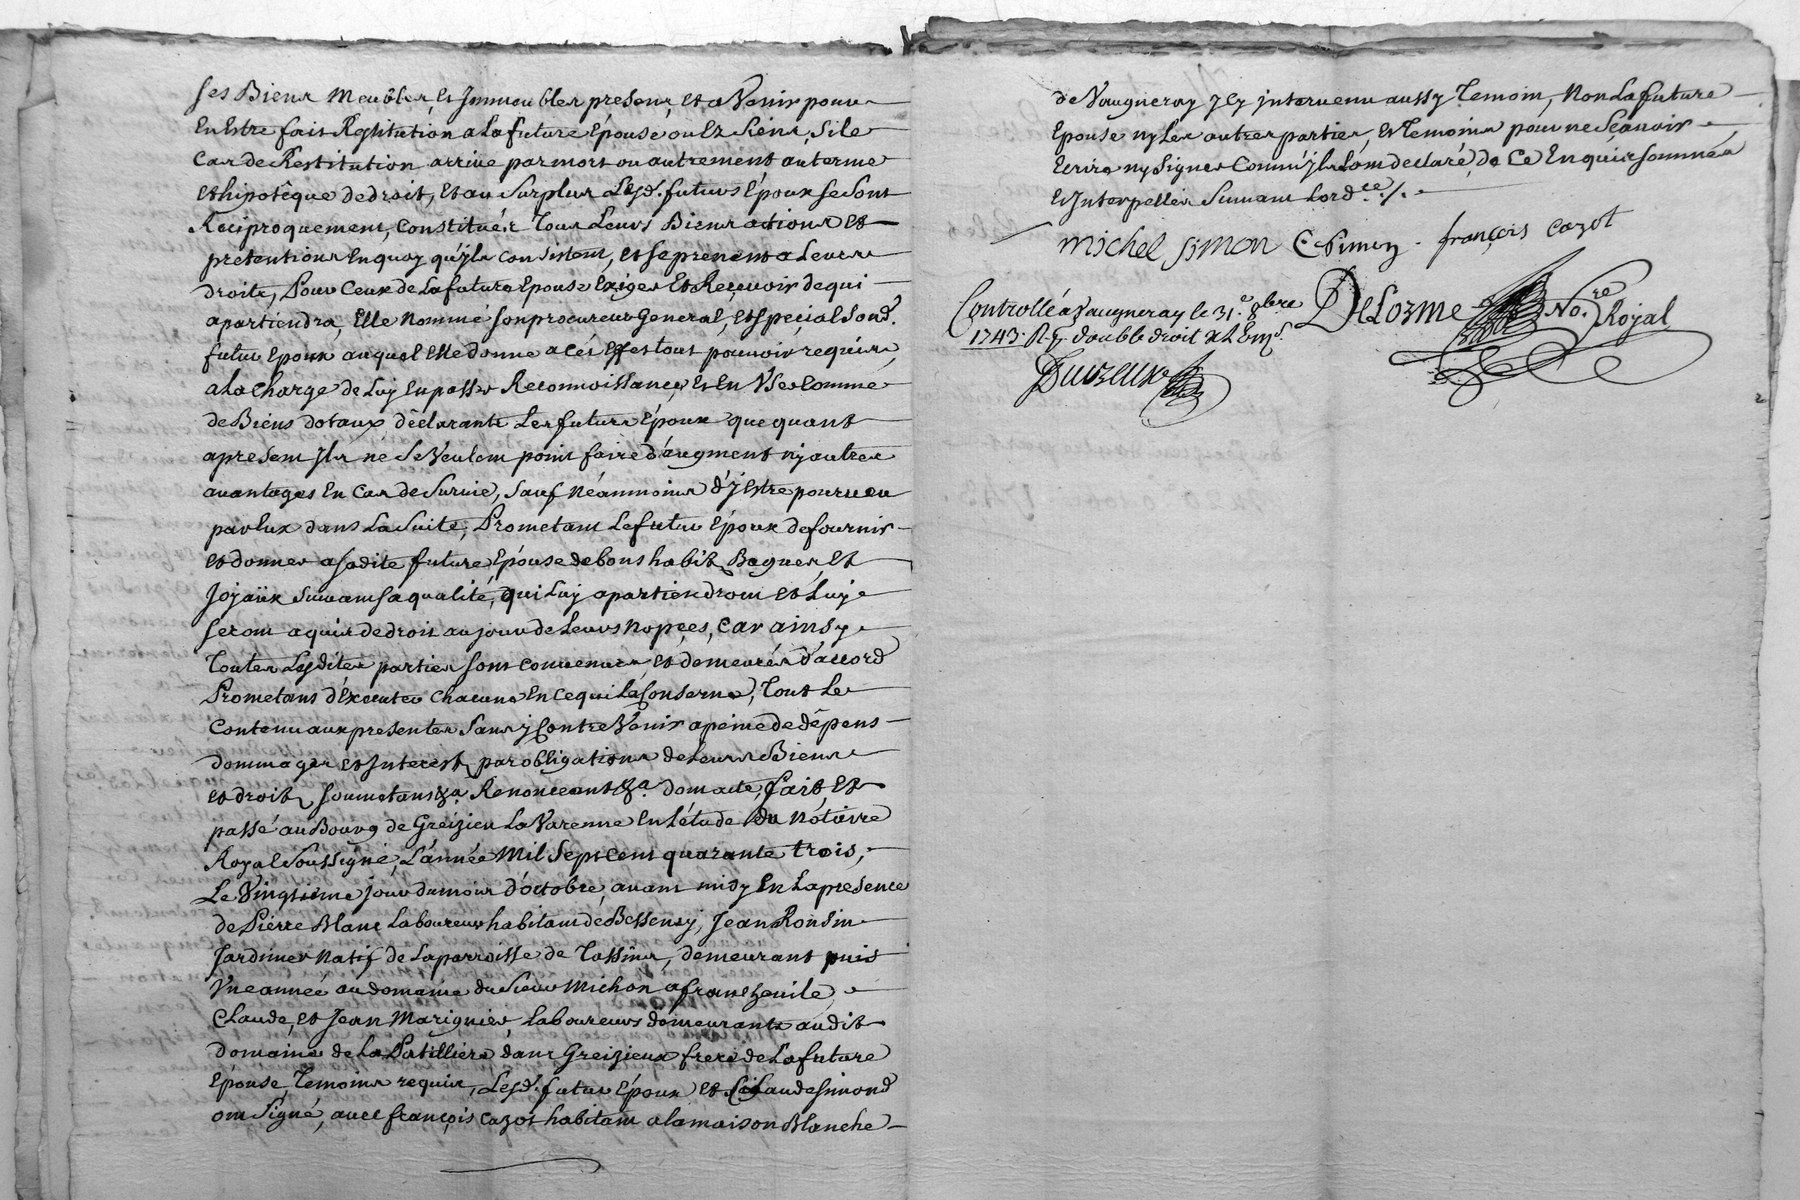 ses Biens Meubles et Immeubles presens et a Venir pour
En Estre fait Restitution a La future Epouse ou Ez siens si le
Cas de Restitution arrive par mort ou autrement au terme
et hipotêque de droit, Et au surplus Lesd. futurs Epoux se sont
Reciproquement, Constitués Tous Leurs Biens actions et
pretentions En quoy qu'jls Consistent, et se prenent a Leurs
droits, Pour Ceux de La future Epouse Exiger Et Recevoir de qui
apartiendra, Elle Nomme son procureur General, et special Sond.
futur Epoux auquel Elle donne a cés effes tout pouvoir requis,
a la Charge de Luy En passer Reconnoissance, Et En Vser Comme
de Biens dotaux déclarants Les futurs Epoux que quant
a present Jls né se Veulent point faire d'augment nj autres
avantages En Cas de Survie, sauf Néanmoins d'j Estre pourveu
par Eux dans La Suite, Prometant Le futur Epoux de fournir
et donner a sadite future Epouse de bons habits Bagues, Et
Jojaux suivant sa qualité, qui Luy apartiendront et Luy
seront aquis de droit au jour de Leurs Nopces, Car ainsy
Toutes Lesdites parties sont convenues et demeurés d'accord
Prometans d'Executer Chacune En ce qui La Conserne, Tout Le
Contenu aux presentes sans j Contre Venir a peine de dépens
dommages et Interests par obligations de Leurs Biens
et droits soumetans &a. Renonceant &a. dont acte, fait Et
passé au Bourg de Greizieu La Varenne En L'étude du Notaire
Royal Soussigné, L'année Mil Sept Cent quarante trois,
Le Vingtieme jour du mois d'octobre, avant midy En La presence
de Pierre Blanc Laboureur habitant de Bessenay, Jean Ronsin
Jardinier Natif de La parroisse de Tassins, demeurant puis
Vne année au domaine du Sieur Michon a francheville,
Claude, et Jean Marignier, Laboureurs demeurants audit
domaine de La Patilliere dans Greizieux freres de La future
Epouse Temoins requis, Lesd. futur Epoux et Claude Simond
ont signé, avec françois Cazot habitant a la maison Blanche
de Vaugneray Jcy jntervenu aussy Temoin, Non La future
Epouse ny Les autres parties, et Temoins pour ne Scavoir
Ecrire ny Signer Comm'jls L'ont declaré de Ce Enquis sommés
Et Interpellés Suivant L'ord.ce /.
michel simon C Simon françois cazot
Controllé a Vaugneray le 31.e 8bre
1743. R. double droit
DeLorme No.re Royal
Duvzeux